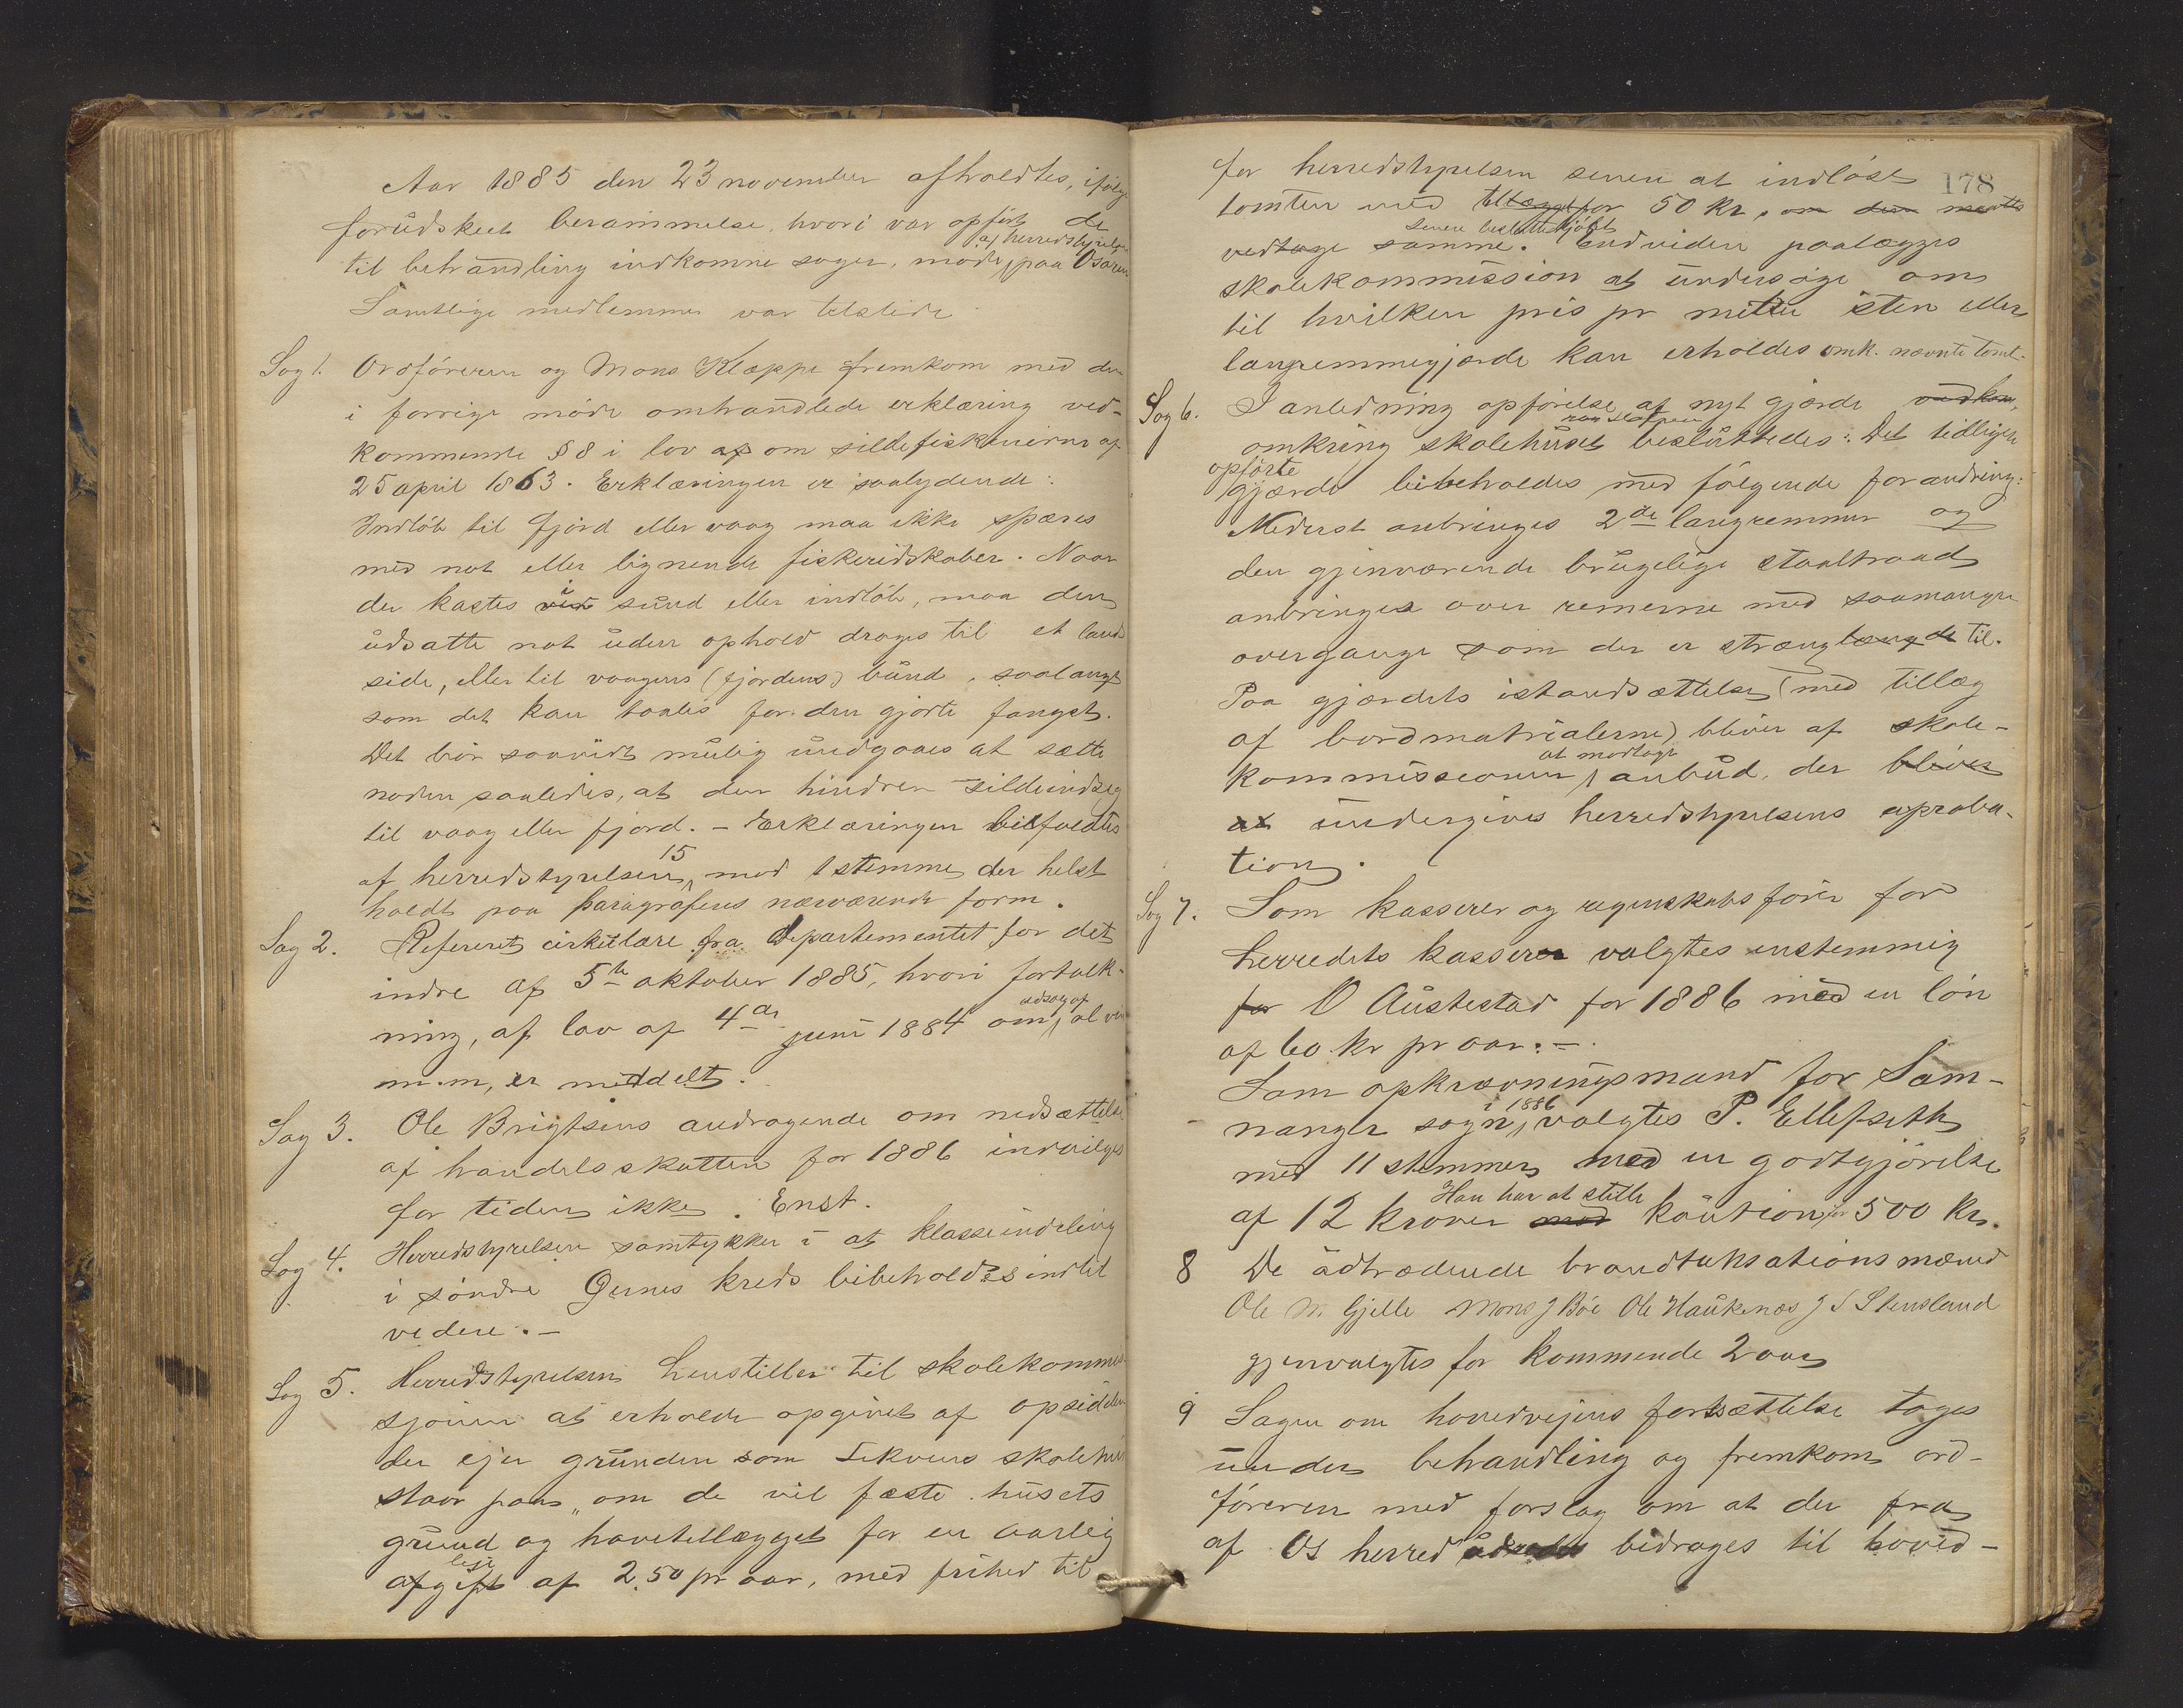 Aar 1885 den 23 november afholdtes, ifølge
forudskeet berammelse, hvori var opført de
til behandling indkomne sager, møde af herredstyrelsen paa Osøren
Samtlige medlemmer var tilstede
Sag 1. Ordføreren og Mons Klæppe fremkom med den
i forrige møde omhandlede erklæring ved-
kommende § 8 i lov af om sildefiskerierne af
25 april 1863. Erklæringen er saalydende:
Indløb til fjord eller vaag maa ikke spæres
med not eller lignende fiskeridskaber. Naar
der kastes i sund eller indløb, maa den
udsatte not uden ophold drages til et lands
side, eller til vaagens (fjordens) bund, saalangt
som det kan taales for den gjorte fangst.
Det bør saavidt mulig undgaaes at sætte
noden saaledes, at den hindrer sildeindsig
til vaag eller fjord. – Erklæringen bifaldtes
af herredstyrelsen 15 mod 1 stemme der helst
holdt paa paragrafens nærværende form.
Sag 2. Refereret cirkulære fra Departementet for det
indre af 5te oktober 1885, hvori fortolk-
ning, af lov af 4de juni 1884 om udsalg af øl vin
m.m, er meddelt.
Sag 3. Ole Brigtsens andragende om nedsættelse
af handelsskatten for 1886 indvilges
for tiden ikke. Enst.
Sag 4. Herredstyrelsen samtykker i at klasseindeling
i søndre Øernes kreds bibeholdes indtil
videre. –
Sag 5. Herredstyrelsen henstiller til skolekommis-
sjonen at erholde opgivet af opsidderne
der ejer grunden som Lekvens skolehus
staar paa, om de vil fæste husets
grund og havetillægget for en aarlig
afgift leje af 2,50 pr aar, med frihed til
178
for herredstyrelsen senere at indløse
tomten med tillægget for 50 kr, om den maatte
vedtage samme. senere besluttes kjøbt Endvidere paalægges
skolekommission at undersøge om
til hvilken pris pr meter sten eller
langremmegjærde kan erholdes omk. nævnte tomt.
Sag 6. I anledning opførelse af nyt gjærde vedkom,
omkring skolehuset besluttedes: Det tidligere
opførte gjærde bibeholdes med følgende forandring:
Nederst anbringes 2de langremmer og
den gjenværende brugelige staaltraad
anbringes over remerne med saamange
overgange som der er strænglængde til.
Paa gjærdets istandsættelse (med tillæg
af bordmatrialerne) bliver af skole-
kommissionen at modtage anbud, der bliver
at undergives herredstyrelsens aproba-
tion.
Sag 7. Som kasserer og regnskabsfører for
herredets kasserer valgtes enstemmig
for O Austestad for 1886 med en løn
af 60 kr pr aar. –
Som opkrævningsmand for Sam-
nanger sogn i 1886 valgtes P. Ellefseth
med 11 stemmer med en godtgjørelse
af 12 kroner med Han har at stille kaution for 500 kr.
8 De udtrædende brandtaksationsmænd
Ole M. Gjelle Mons J Bøe Ole Haukenæs J S Stensland
gjenvalgtes for kommende 2 aar
9 Sagen om hovedvejens fortsættelse toges
under behandling og fremkom ord-
føreren med forslag om at der fra
af Os herred bidrages til hoved-